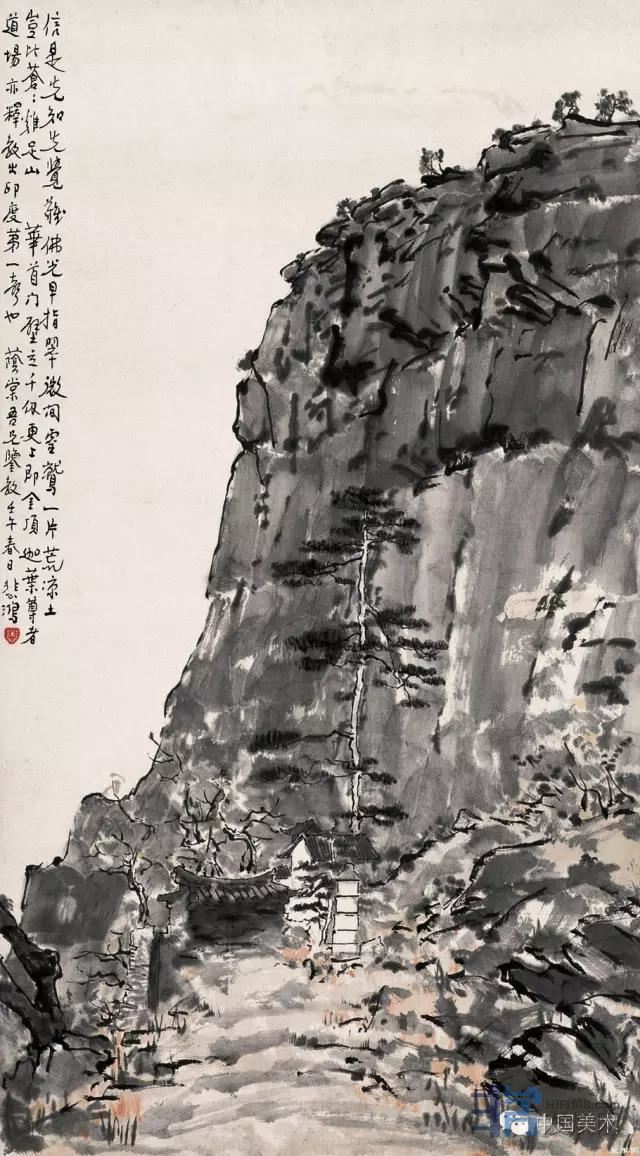 信是先知先覺難佛光早指翠微间靈鷲一片荒凉土
豈比蒼々雞足山 華首门壁立千仭更上即金頂迦葉尊者
道場亦釋教出印度第一也 蔭棠吾兄鑒教 壬午春日 悲鴻
HIFI168
中国美术